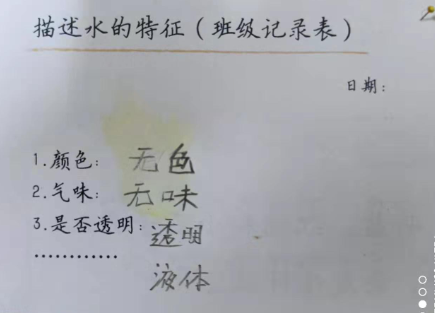 描述水的特征（班级记录表）
日期：
1.颜色：无色
2.气味：无味
3.是否透明：透明
…………
液体